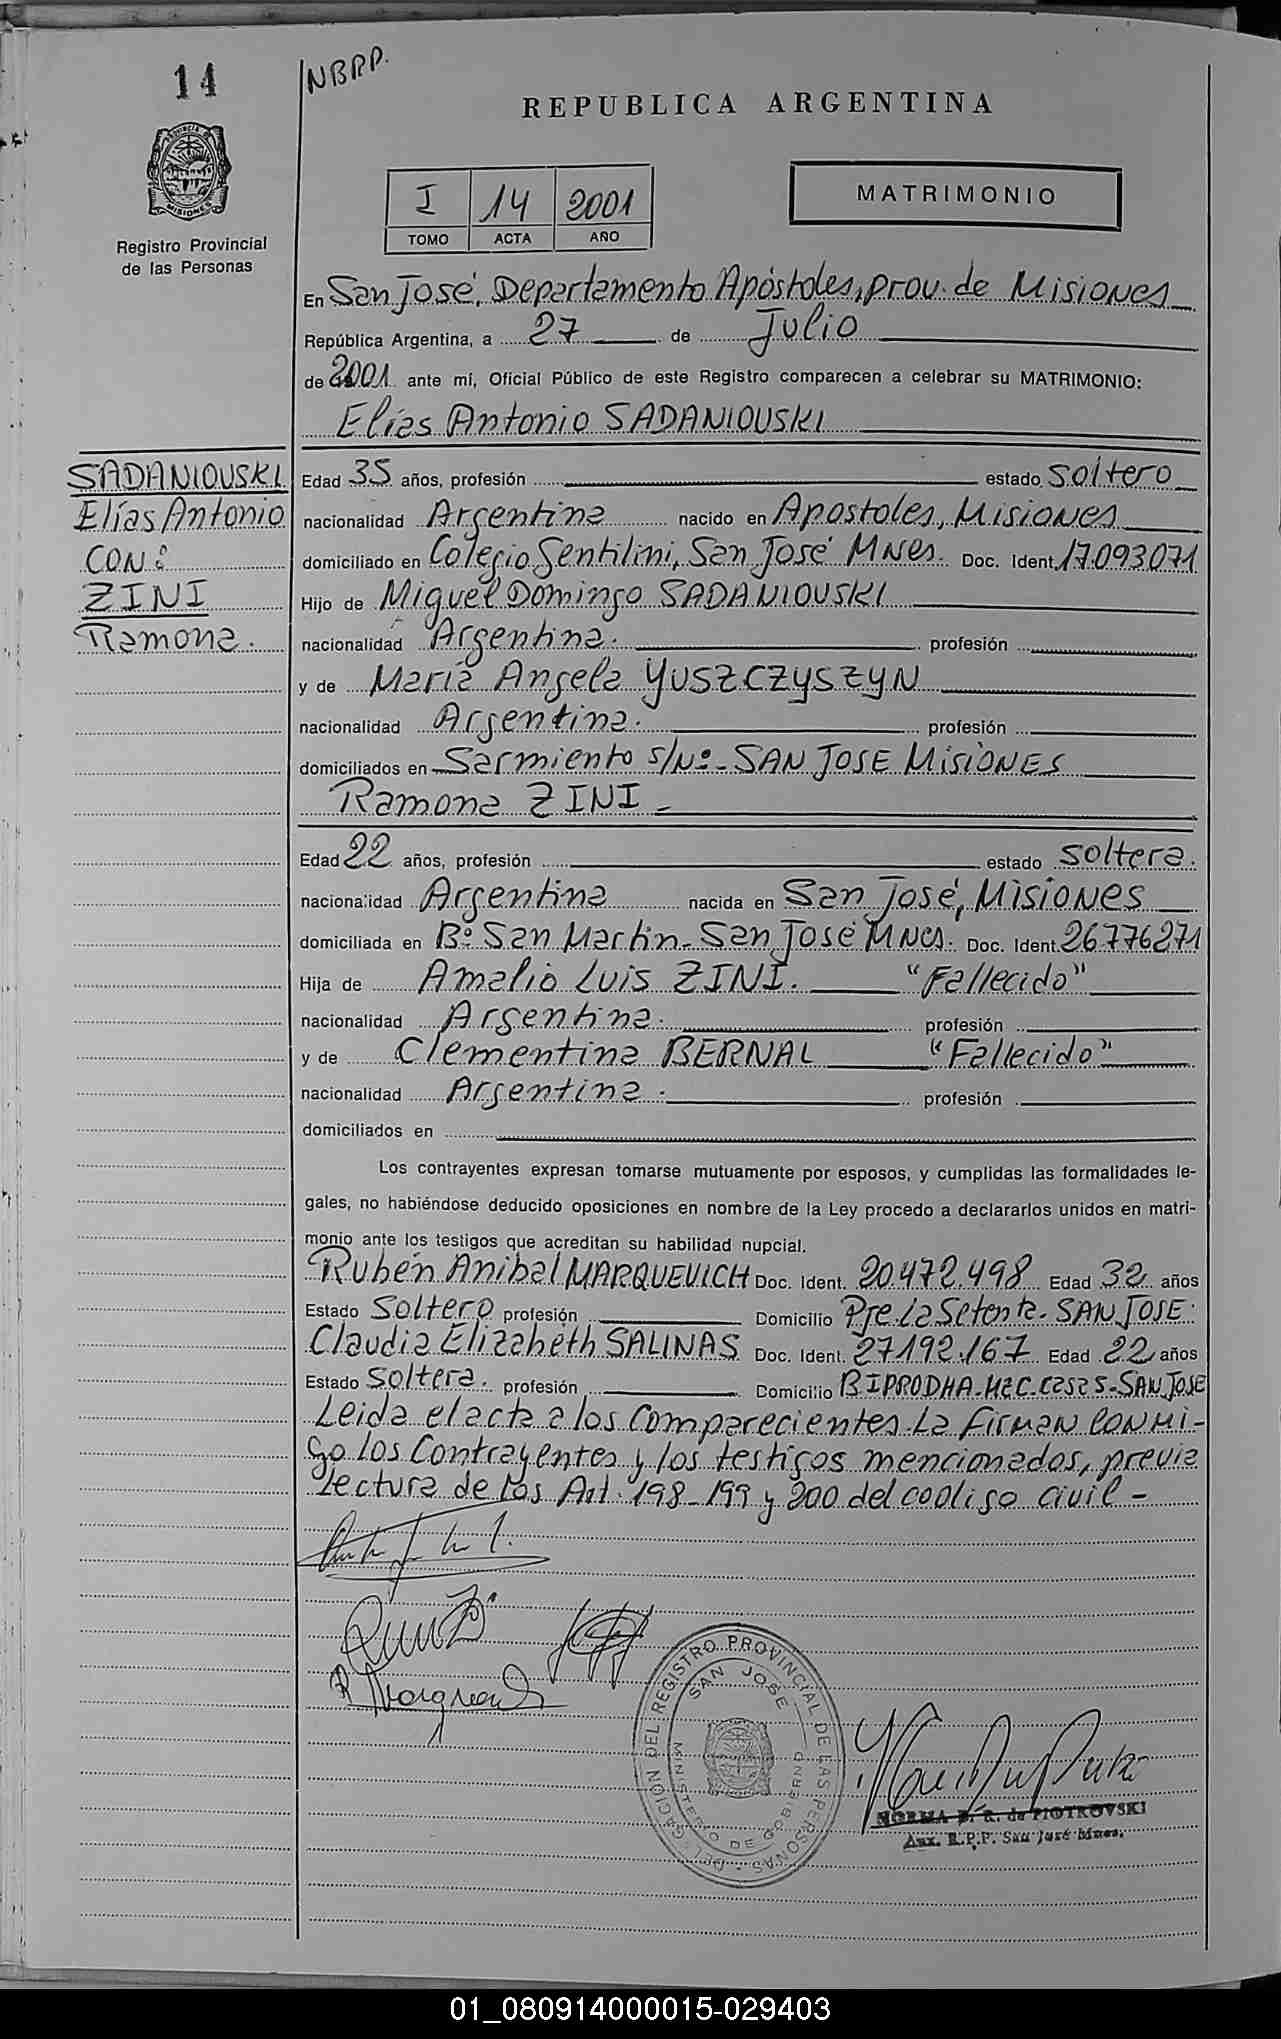 14
NBRP.
REPUBLICA ARGENTINA
PROVINCIA DE MISIONES
Registro Provincial
de las Personas
I 14 2001
TOMO ACTA AÑO
MATRIMONIO
En San José, Departamento Apóstoles, prov. de Misiones
República Argentina, a 27 de Julio
de 2001 ante mí, Oficial Público de este Registro comparecen a celebrar su MATRIMONIO:
Elías Antonio SADANIOUSKI
SADANIOUSKI
Elías Antonio
CON:
ZINI
Ramona.
Edad 35 años, profesión estado soltero
nacionalidad Argentina nacido en Apostoles, Misiones
domiciliado en Colegio Gentilini, San José Mnes. Doc. Ident. 17.093.071
Hijo de Miguel Domingo SADANIOUSKI
nacionalidad Argentina. profesión
y de María Angela YUSZCZYSZYN
nacionalidad Argentina. profesión
domiciliados en Sarmiento s/Nº - SAN JOSE MISIONES
Ramona ZINI -
Edad 22 años, profesión estado soltera.
nacionalidad Argentina nacida en San José, Misiones
domiciliada en Bº San Martin - San José Mnes. Doc. Ident. 26776271
Hija de Amalio Luis ZINI. "Fallecido"
nacionalidad Argentina. profesión
y de Clementina BERNAL "Fallecido"
nacionalidad Argentina. profesión
domiciliados en
Los contrayentes expresan tomarse mutuamente por esposos, y cumplidas las formalidades le-
gales, no habiéndose deducido oposiciones en nombre de la Ley procedo a declararlos unidos en matri-
monio ante los testigos que acreditan su habilidad nupcial.
Rubén Anibal MARQUEVICH Doc. Ident. 20.472.498 Edad 32 años
Estado Soltero profesión Domicilio Pje. La Setenta - SAN JOSE.
Claudia Elizabeth SALINAS Doc. Ident. 27192.167 Edad 22 años
Estado Soltera. profesión Domicilio B IPRODHA - casas - SAN JOSE
Leida el acta a los comparecientes. La Firman conmi-
go los contrayentes y los testigos mencionados, previa
lectura de los Art. 198-199 y 200 del codligo civil -
DELEGACION DEL REGISTRO PROVINCIAL DE LAS PERSONAS
SAN JOSE
MINISTERIO DE GOBIERNO
NORMA B. R. de PIOTROVSKI
Aux. R.P.P. San José Mnes.
01_080914000015-029403